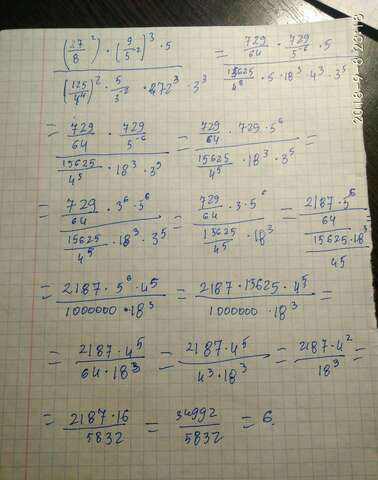 (27/8 ²) · (9/5⁻²)³ · 5 / (125/4⁴)² · 5/3⁻³ · 272³ · 3³ = 729/64 · 729/5⁻⁶ · 5 / 15625/4⁸ · 5 · 18³ · 4³ · 3⁵
= 729/64 · 729/5⁻⁶ / 15625/4⁵ · 18³ · 3⁵ = 729/64 · 729 · 5⁶ / 15625/4⁵ · 18³ · 3⁵ =
= 729/64 · 3⁶ · 5⁶ / 15625/4⁵ · 18³ · 3⁵ = 729/64 · 3 · 5⁶ / 15625/4⁵ · 18³ = 2187 · 5⁶/64 / 15625 · 18³/45
= 2187 · 5⁶ · 4⁵ / 1000000 · 18³ = 2187 · 15625 · 4⁵ / 1000000 · 18³ =
= 2187 · 4⁵ / 64 · 18³ = 2187 · 4⁵ / 4³ · 18³ = 2187 · 4² / 18³ =
= 2187 · 16 / 5832 = 34992 / 5832 = 6.